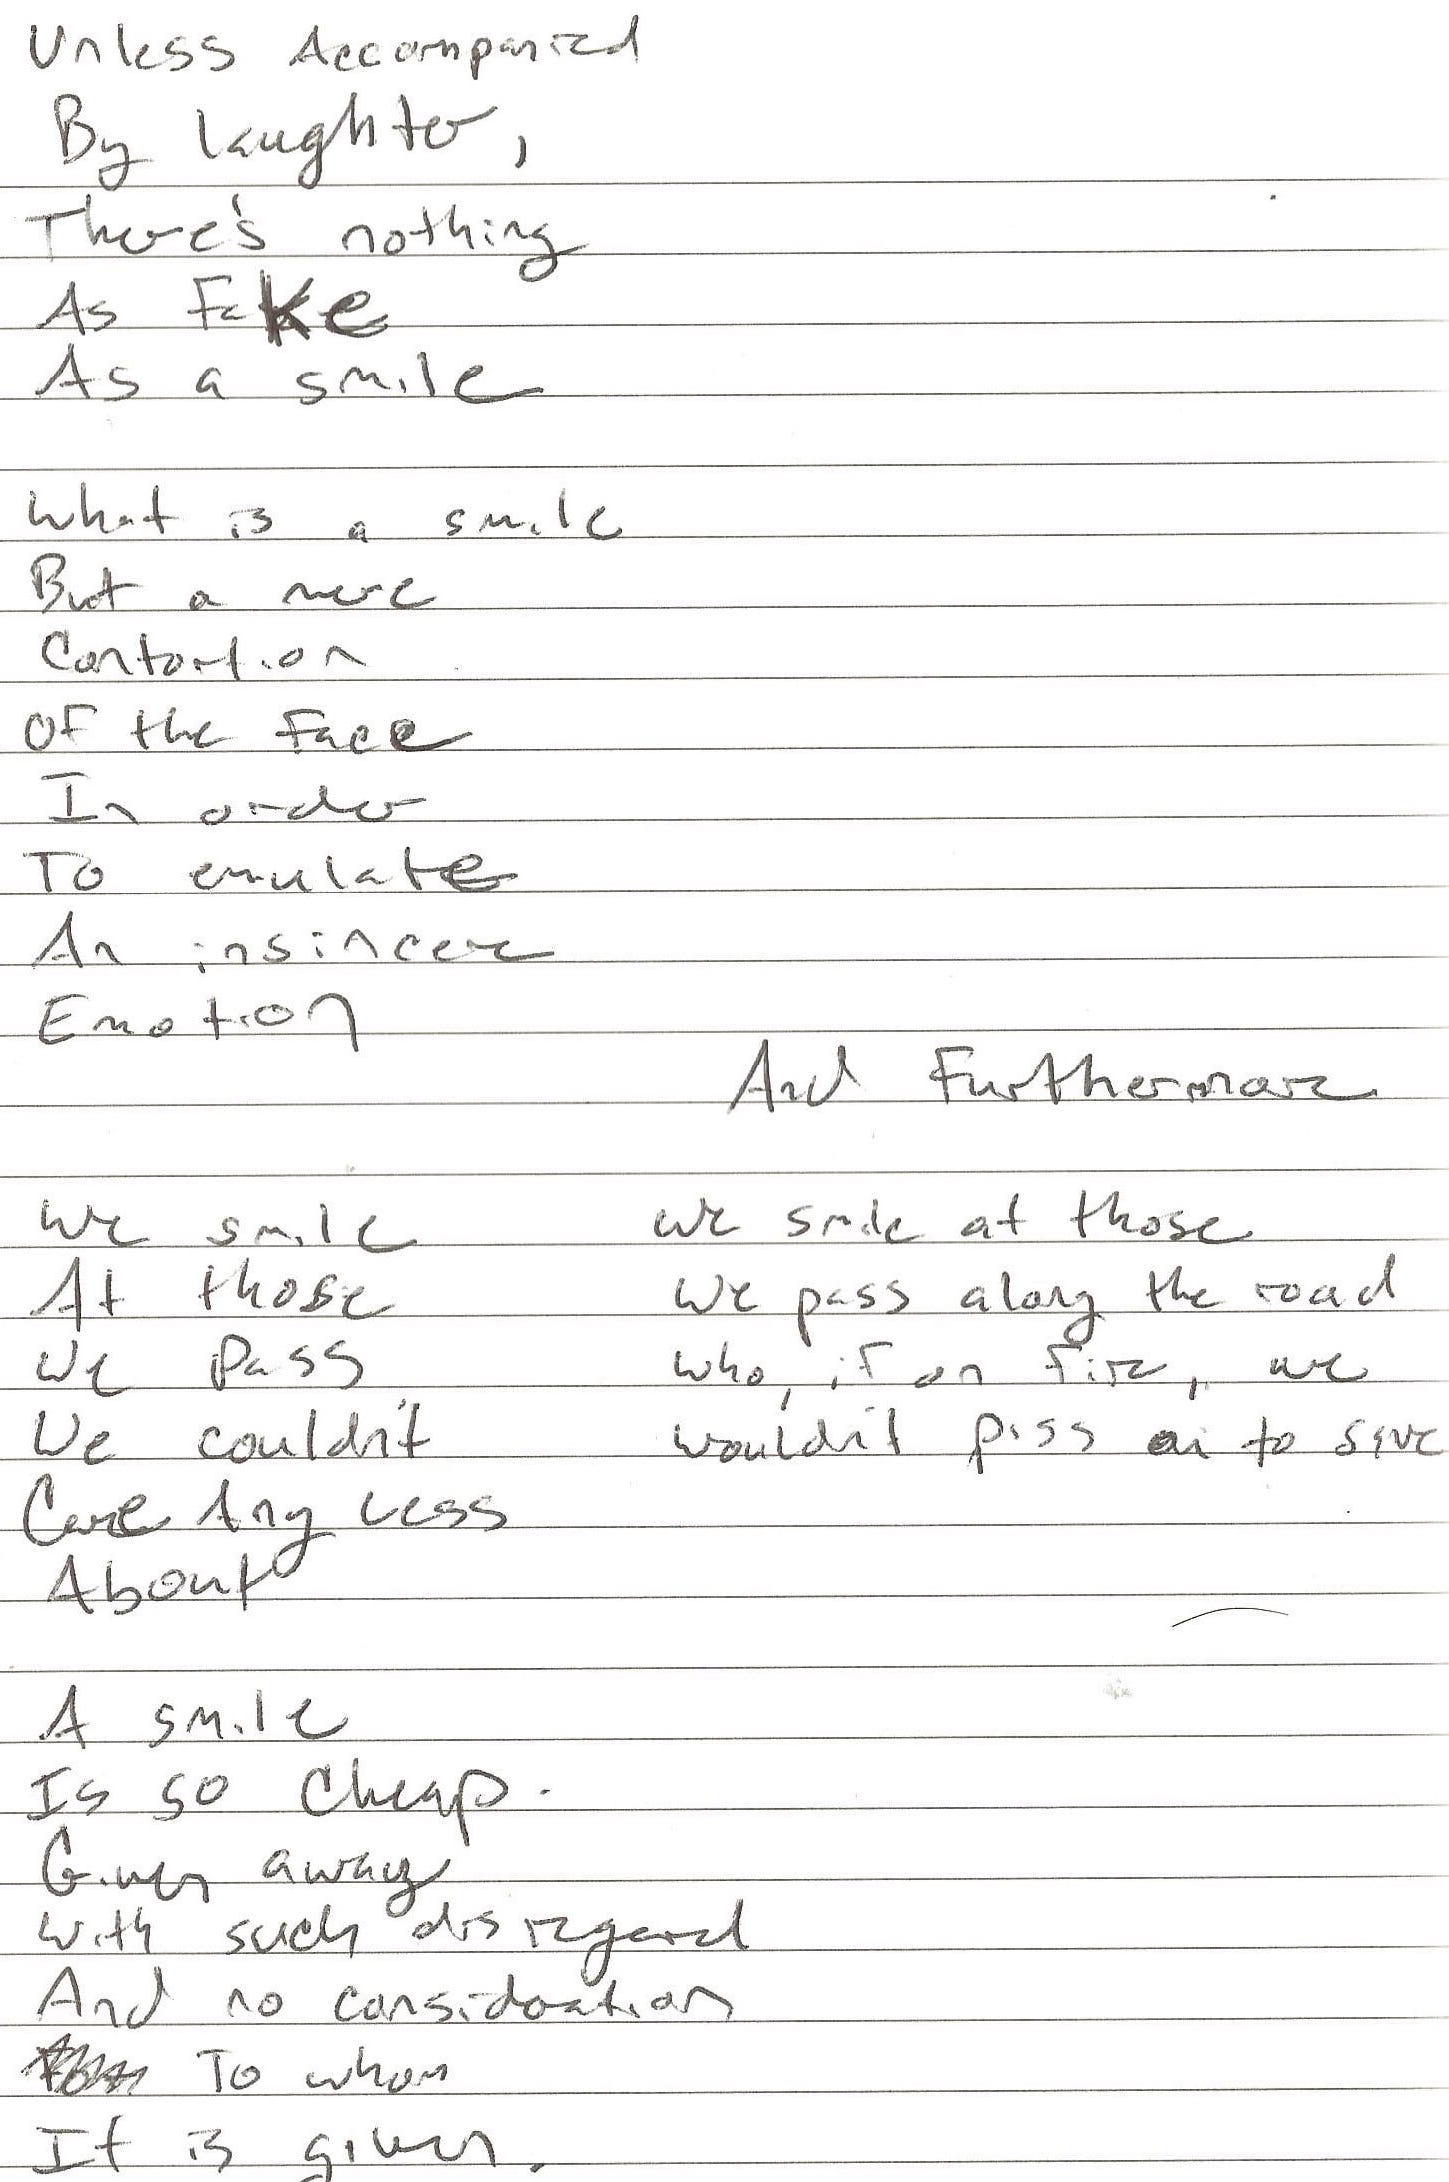 Unless Accompanied
By laughter,
There's nothing
As Fake
As a smile
What is a smile
But a mere
Contortion
Of the Face
In order
To emulate
An insincere
Emotion
And Furthermore
We smile
At those
We Pass
We couldn't
Care Any Less
About
We smile at those
We pass along the road
Who, if on fire, we
wouldn't piss on to save
A smile
Is so Cheap.
Given away
With such disregard
And no consideration
To whom
It is given.